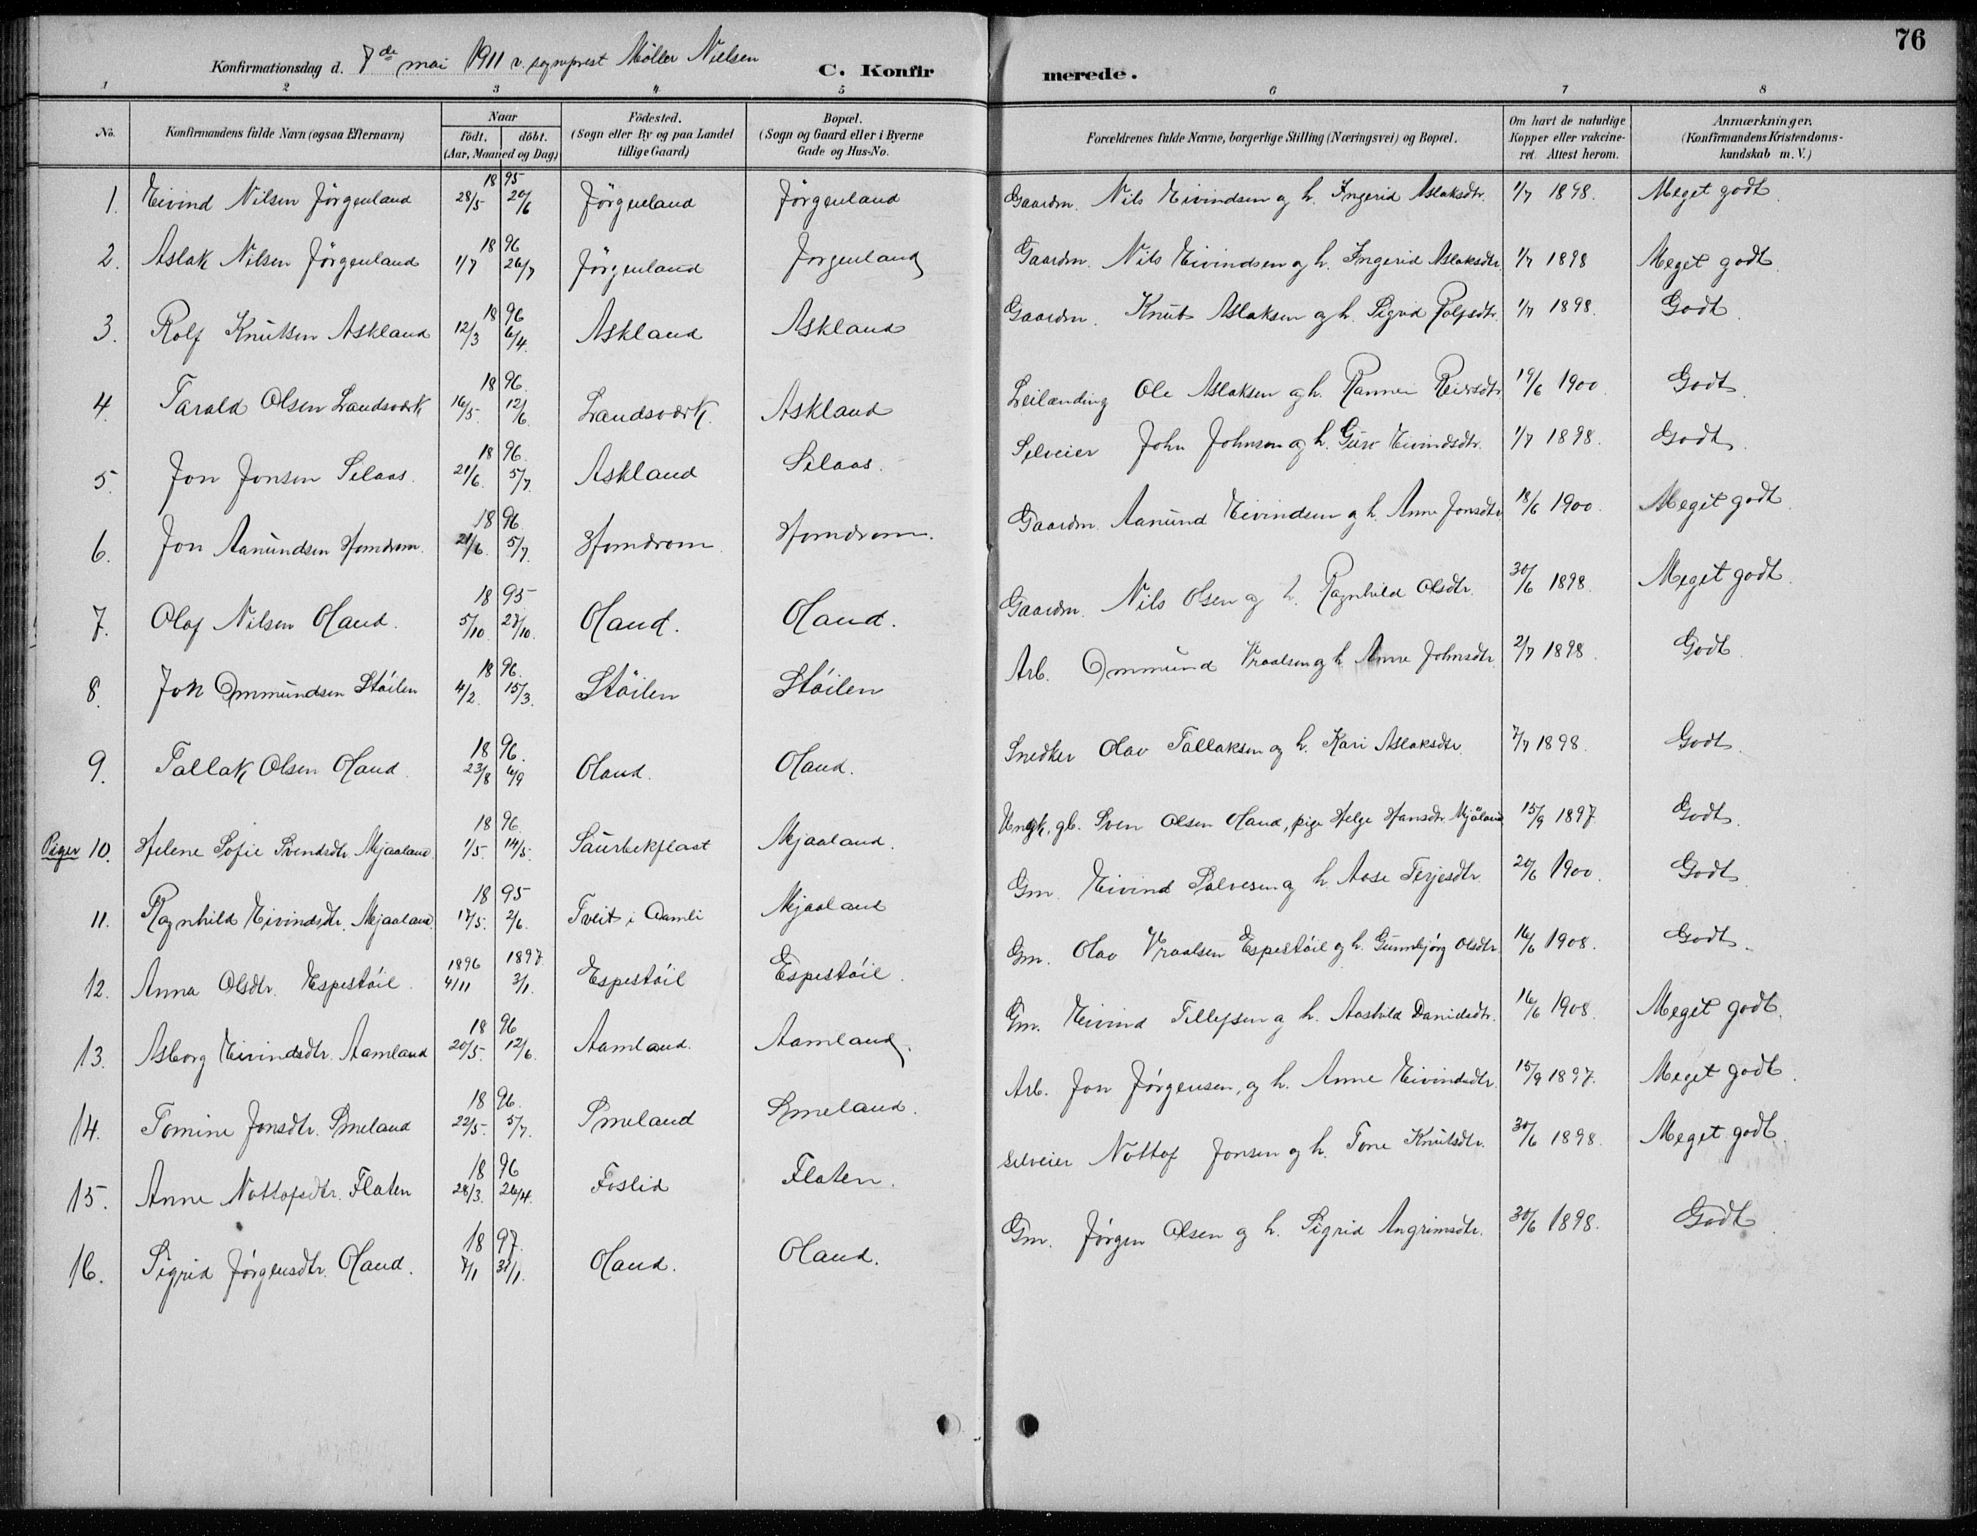 76
Konfirmationsdag d. 7de mai 1911 v. sogneprest Møller Nielsen C. Konfirmerede.
1 2 3 4 5 6 7 8
No. Konfirmandens fulde Navn (ogsaa Efternavn) Naar født. døbt. (Aar, Maaned og Dag) Fødested. (Sogn eller By og paa Landet tillige Gaard) Bopæl. (Sogn og Gaard eller i Byerne Gade og Hus-No. Forældrenes fulde Navne, borgerlige Stilling (Næringsvei) og Bopæl. Om havt de naturlige Kopper eller vakcineret. Attest herom. Anmærkninger. (Konfirmandens Kristendomskundskab m. V.)
1. Eivind Nilsen Jørgenland 1895 28/5 20/6 Jørgenland Jørgenland Gaardm. Nils Eivindsen og h. Ingerid Aslaksdtr. 1/7 1898. Meget godt.
2. Aslak Nilsen Jørgenland 1896 1/7 26/7 Jørgenland Jørgenland Gaardm. Nils Eivindsen og h. Ingerid Aslaksdtr. 1/7 1898 Meget godt.
3. Rolf Knutsen Askland 1896 12/3 6/4. Askland Askland Gaardm. Knut Aslaksen og h. Sigrid Rolfsdtr. 1/7 1898. Godt.
4. Tarald Olsen Landsværk 1896. 16/5. 12/6. Landsværk. Askland Leilænding Ole Aslaksen og h. Rannei Reiersdtr. 19/6 1900. Godt.
5. Jon Jonsen Selaas. 1896. 21/6. 5/7. Askland Selaas. Selveier John Johnsen og h. Guro Eivindsdtr. 1/7 1898. Godt.
6. Jon Aanundsen Homdrom. 1896. 21/6. 5/7. Homdrom. Homdrom. Gaardm. Aanund Eivindsen og h. Anne Jonsdtr. 18/6 1900. Meget godt.
7. Olaf Nilsen Oland. 1895 5/10. 27/10. Oland. Oland. Gaardm. Nils Olsen og h. Ragnhild Olsdtr. 30/6 1898. Meget godt.
8. Jon Ommundsen Støilen 1896. 4/2. 15/3. Støilen Støilen Arb. Ommund Vraalsen og h. Anne Johnsdtr. 2/7 1898. Godt.
9. Tallak Olsen Oland. 1896. 23/8 6/9 Oland. Oland. Snedker Olav Tallaksen og h. Kari Aslaksdtr. 7/7 1898. Godt.
Piger 10. Helene Sofie Svendsdtr. Mjaaland. 1896. 1/5. 14/5. Saurbekplast Mjaaland. Ungk. gb. Sven Olsen Oland, pige Helge Hansdtr. Mjåland 15/9 1897. Godt.
11. Ragnhild Eivindsdtr. Mjaaland. 1895 17/5. 2/6. Tveit i Aamli Mjaaland Gm. Eivind Salvesen og h. Aase Terjesdtr. 20/6 1900. Godt.
12. Anna Olsdtr. Espestøil. 1896 4/11 1897. 3/1. Espestøil Espestøil. Gm. Olav Vraalsen Espestøil og h. Gunnbjørg Olsdtr. 16/6 1908. Godt.
13. Asborg Eivindsdtr. Aamland 1896 20/5. 12/6. Aamland. Aamland. Gm. Eivind Tellefsen og h. Aashild Danielsdtr. 16/6 1908. Meget godt.
14. Tomine Jonsdtr. Smeland 1896. 22/5. 5/7. Smeland Smeland. Arb. Jon Jørgensen, og h. Anne Eivindsdtr. 15/9 1897. Meget godt.
15. Anne Nottofsdtr. Flaten 1896 28/3. 26/4. Foslid Flaten. Selveier Nottof Jonsen og h. Tone Knutsdtr. 30/6 1898. Meget godt.
16. Sigrid Jørgensdtr. Oland. 1897. 7/1 31/1. Oland. Oland. Gm. Jørgen Olsen og h. Sigrid Angrimsdtr. 30/6 1898. Godt.